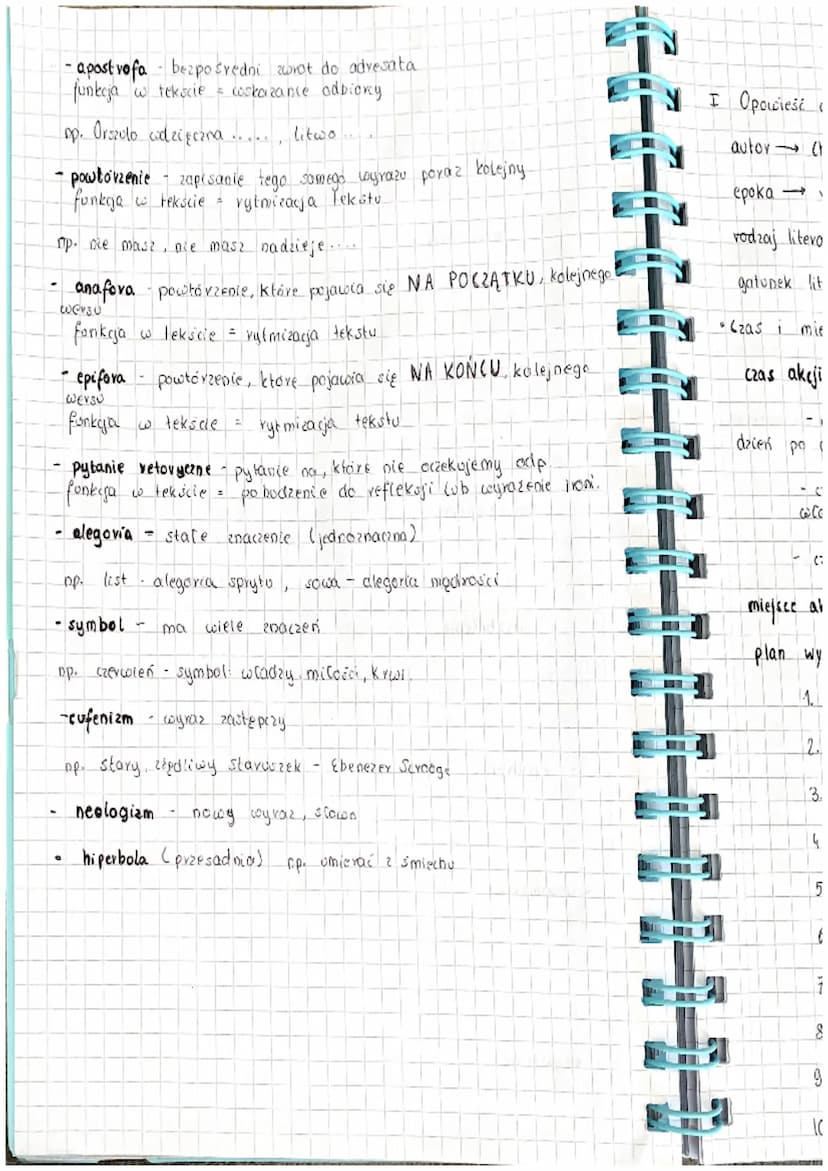 - apostrofa - bezpośredni zwrot do adresata
funkcja w tekście = wskazanie odbiorcy
np. Orszulo wdzięczna ....., litwo ...
- powtórzenie - zapisanie tego samego wyrazu poraz kolejny
funkcja w tekście = rytmizacja tekstu
np. nie masz, nie masz nadzieje....
- anafora - powtórzenie, które pojawia się NA POCZĄTKU, kolejnego
wersu
funkcja w tekście = rytmizacja tekstu
- epifora - powtórzenie, które pojawia się NA KOŃCU, kolejnego
wersu
funkcja w tekście = rytmizacja tekstu
- pytanie retoryczne - pytanie na, które nie oczekujemy odp.
funkcja w tekście = pobudzenie do refleksji lub wyrażenie ironi.
- alegoria = stałe znaczenie (jednoznaczna)
np. list - alegoria sprytu, sowa - alegoria mądrości
- symbol - ma wiele znaczeń
np. czerwień - symbol: władzy, miłości, krwi.
- eufenizm - wyraz zastępczy
np. stary, zrzędliwy staruszek - Ebenezer Scrooge
- neologizm - nowy wyraz, słowo
• hiperbola (przesadnia) np. umierać z śmiechu
I Opowieść
autor →
epoka →
rodzaj
gatunek
• Czas i
czas akcji
-
dzień po
-
-
miejsce
plan
1.
2.
3.
4
5
6
7
8
9
10